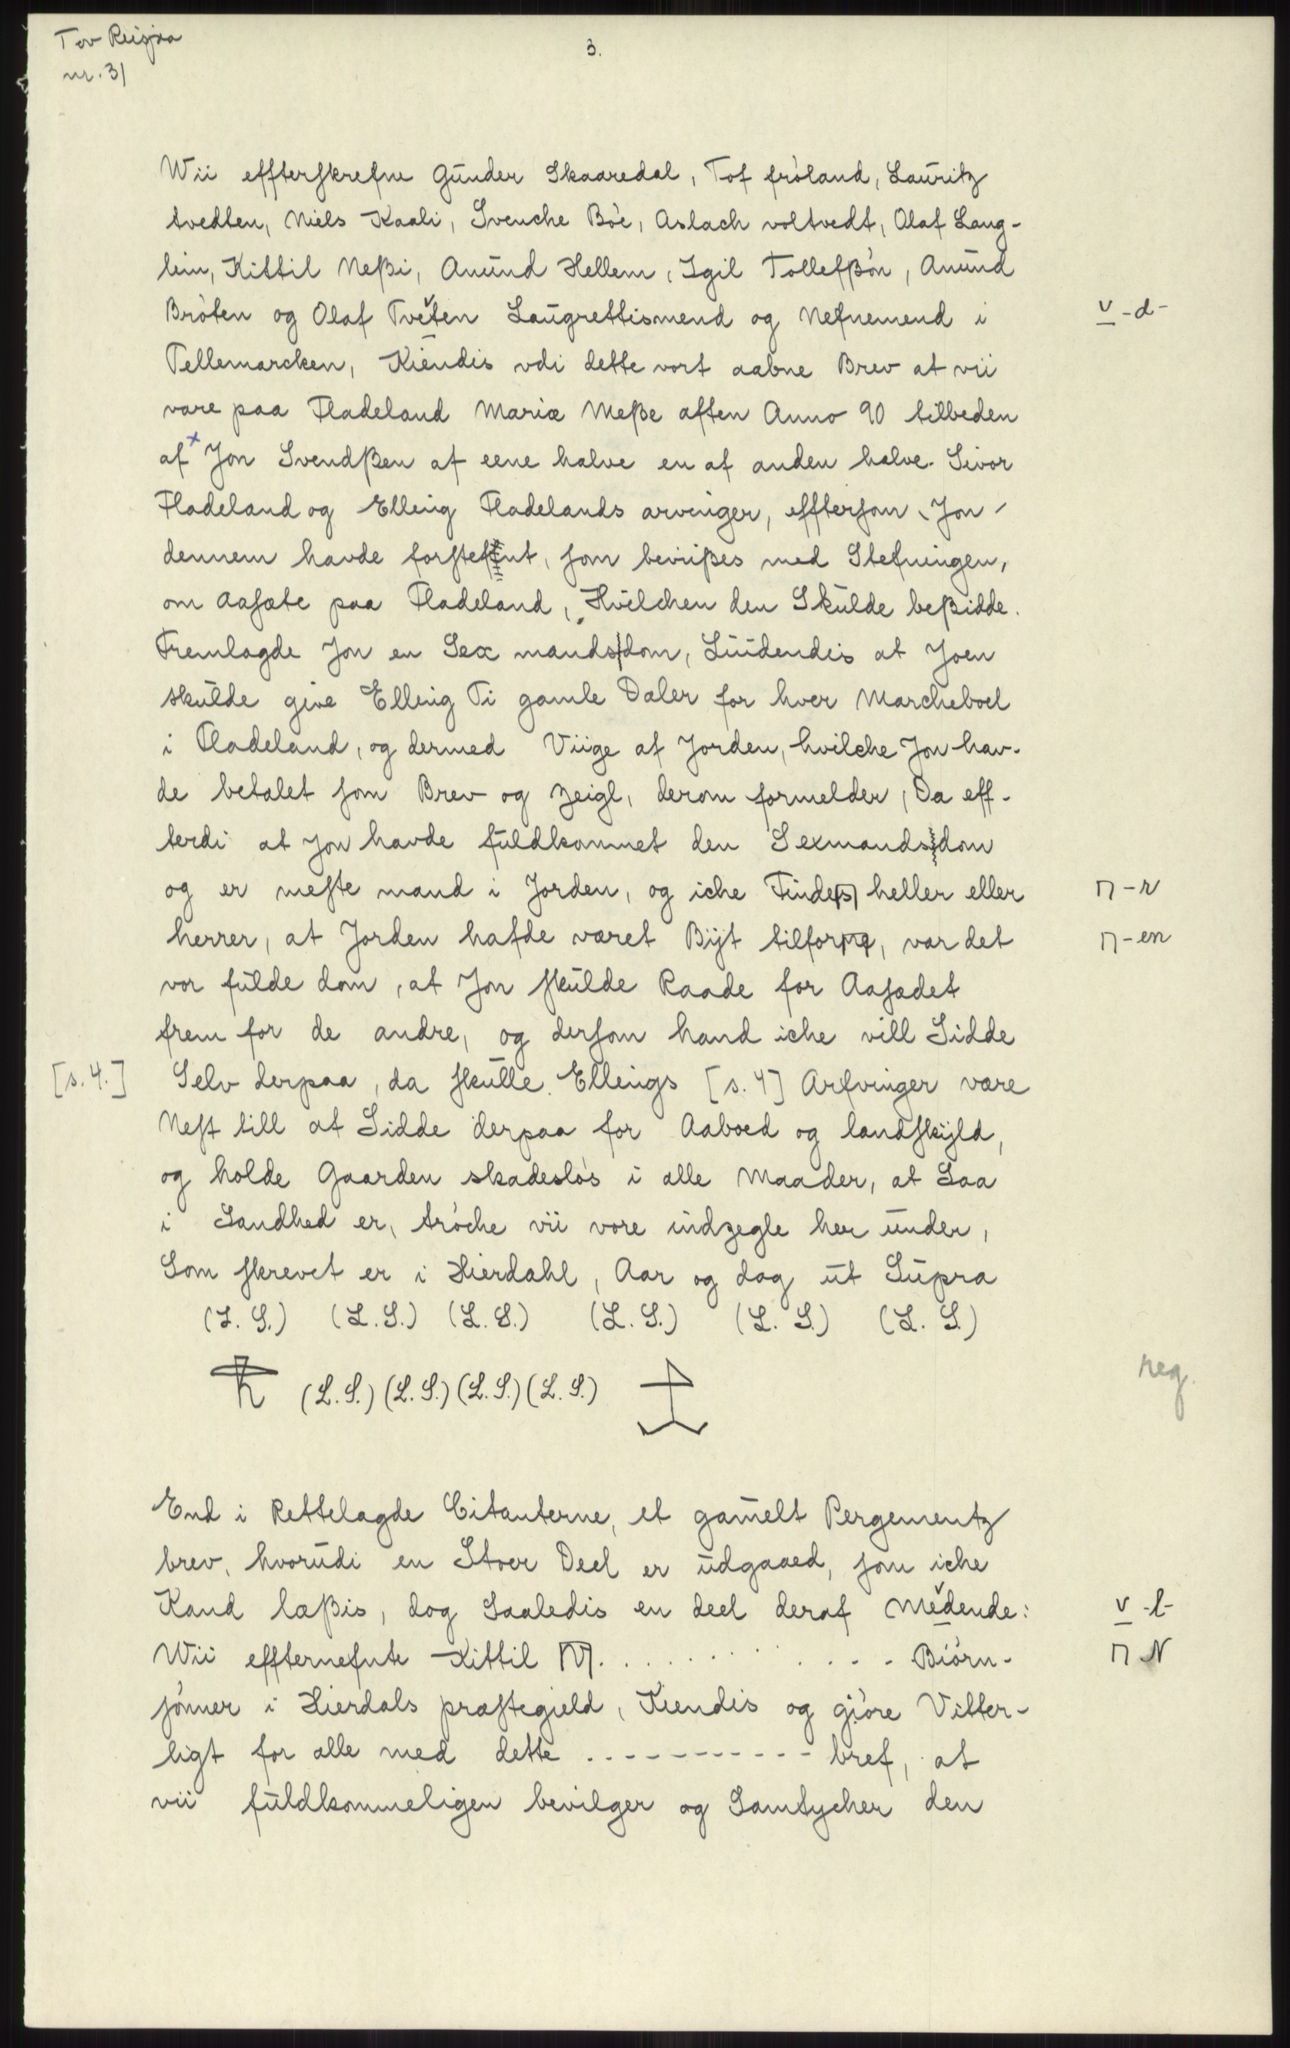 Tov Reisjaa
nr. 31
3.
Wii effterskrefne Gunder Skaaredal, Tof fróland, Lauritz
tvedten, Niels Kaali, Svenche Böe, Aslach voltvedt, Olaf Laug-
lim, Kittil Neßi, Anund Hellem, Igil Tollefßön, Anund
Bröten og Olaf Tveten Laugrettismend og Nefnemend i
v -d-
Tellemarcken, Kiendis vdi dette vort aabne Brev at vii
vare paa Fladeland Mariæ Meße aften Anno 90 tilbeden
af x Jon Svendßen af eene halve en af anden halve. Sivor
Fladeland og Elling Fladelands arvinger, efftersom Jon
dennem havde forstefnt, som beviißes med Stefningen,
om aasæte paa Fladeland, Hvilchen den Skulde beßidde.
Fremlagde Jon en Sex mands dom, Luudendis at Joen
skulde give Elling Ti gamle Daler for hver Marcheboel
i Fladeland, og dermed Viige af Jorden, hvilche Jon hav-
de betalet som Brev og zeigl, derom formelder, Da eff-
terdi at Jon havde fuldkommet den Sexmands dom
og er meste mand i Jorden, og iche Findes heller eller
⊓ -r
herrer, at Jorden hafde været Bijt tilforne, var det
⊓ -en
vor fulde dom, at Jon skulde Raade for Aasædet
frem for de andre, og dersom hand iche vill Sidde
[s. 4.] Selv derpaa, da skulle Ellings [s. 4] Arfvinger være
Nest till at Sidde derpaa for Aaboed og landskyld,
og holde Gaarden skadeslös i alle Maader, at Saa
i Sandhed er, tröche vii vore indzegle her under,
Som skrevet er i Hierdahl, Aar og dag ut Supra
(L. S.) (L. S.) (L. S.) (L. S.) (L. S.) (L. S.)
(L. S.) (L. S.) (L. S.) (L. S.)
neg.
End i Rettelagde Citanterne, et gamelt Pergementz
brev, hvorudi en Stoer Deel er udgaaed, som iche
Kand læßis, dog Saaledis en deel deraf Medende:
v -l-
Wii effternefnte Kittil N. . . . . . . . . . . - - - Biörn-
⊓ N
sönner i Hierdals præstegield, Kiendis og giöre Vitter-
ligt for alle med dette . - - - - - - - - - - - bref, at
vii fuldkommeligen bevilger og Samtycher den